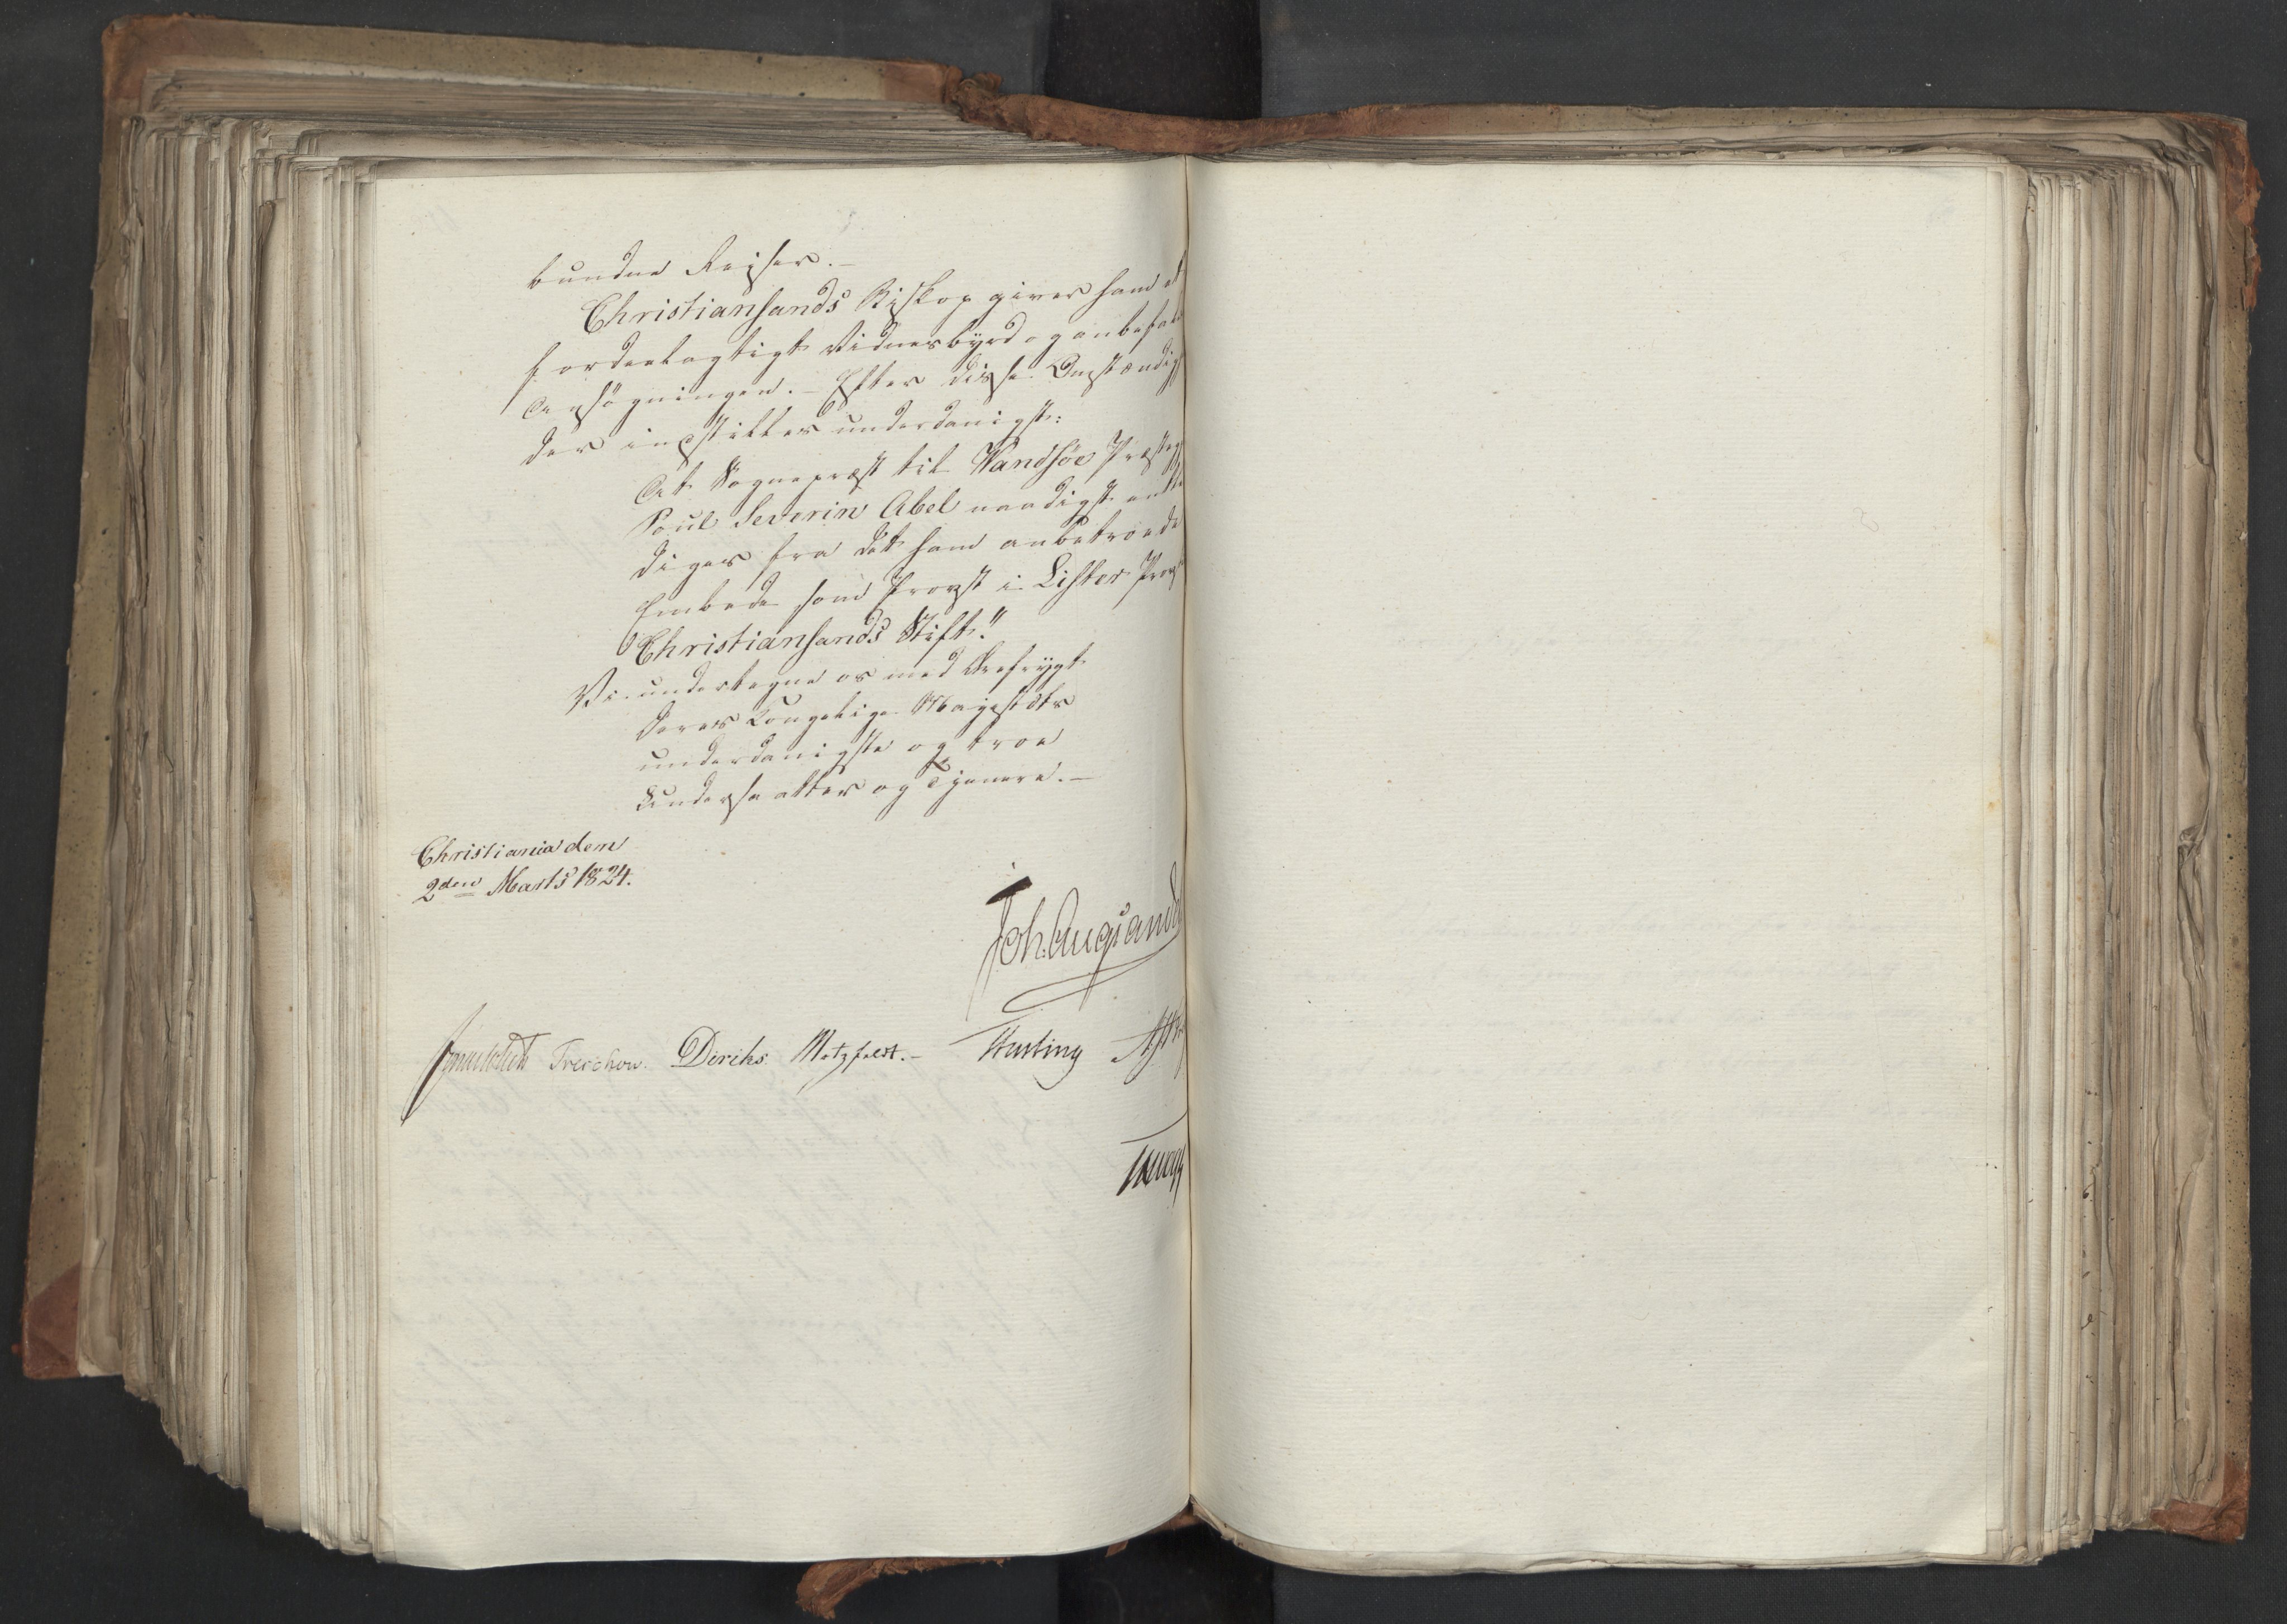 bundne Reiser.–
Christiansands Biskop giver ham et
fordeelagtigt Vidnesbyrd og anbefaler
Ansøgningen.– Efter disse Omstændig
der indstilles underdanigst:
At Sognepræst til Vandsöe Præsteg
Poul Severin Abel naadigst entle
diges fra det ham anbetroede
Embede som Provst i Lister Provs
Christiansands Stift."
Vi undertegne os med Ærefrygt
Deres Kongelige Majestæts
underdanigste og troe
Undersaatter og Tjenere.–
Christiania den
2den Marts 1824.
Joh. Aug: Sand
Sommerhielm Treschow. Diriks. Motzfeldt.– Fasting